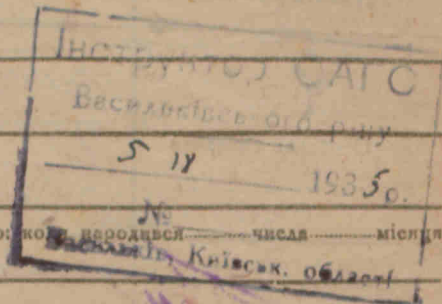 Інструктор САГС
Васильківського р-ну
5 IV 1935 р.
№
коли народився числа місяця
Васильків, Київськ. області